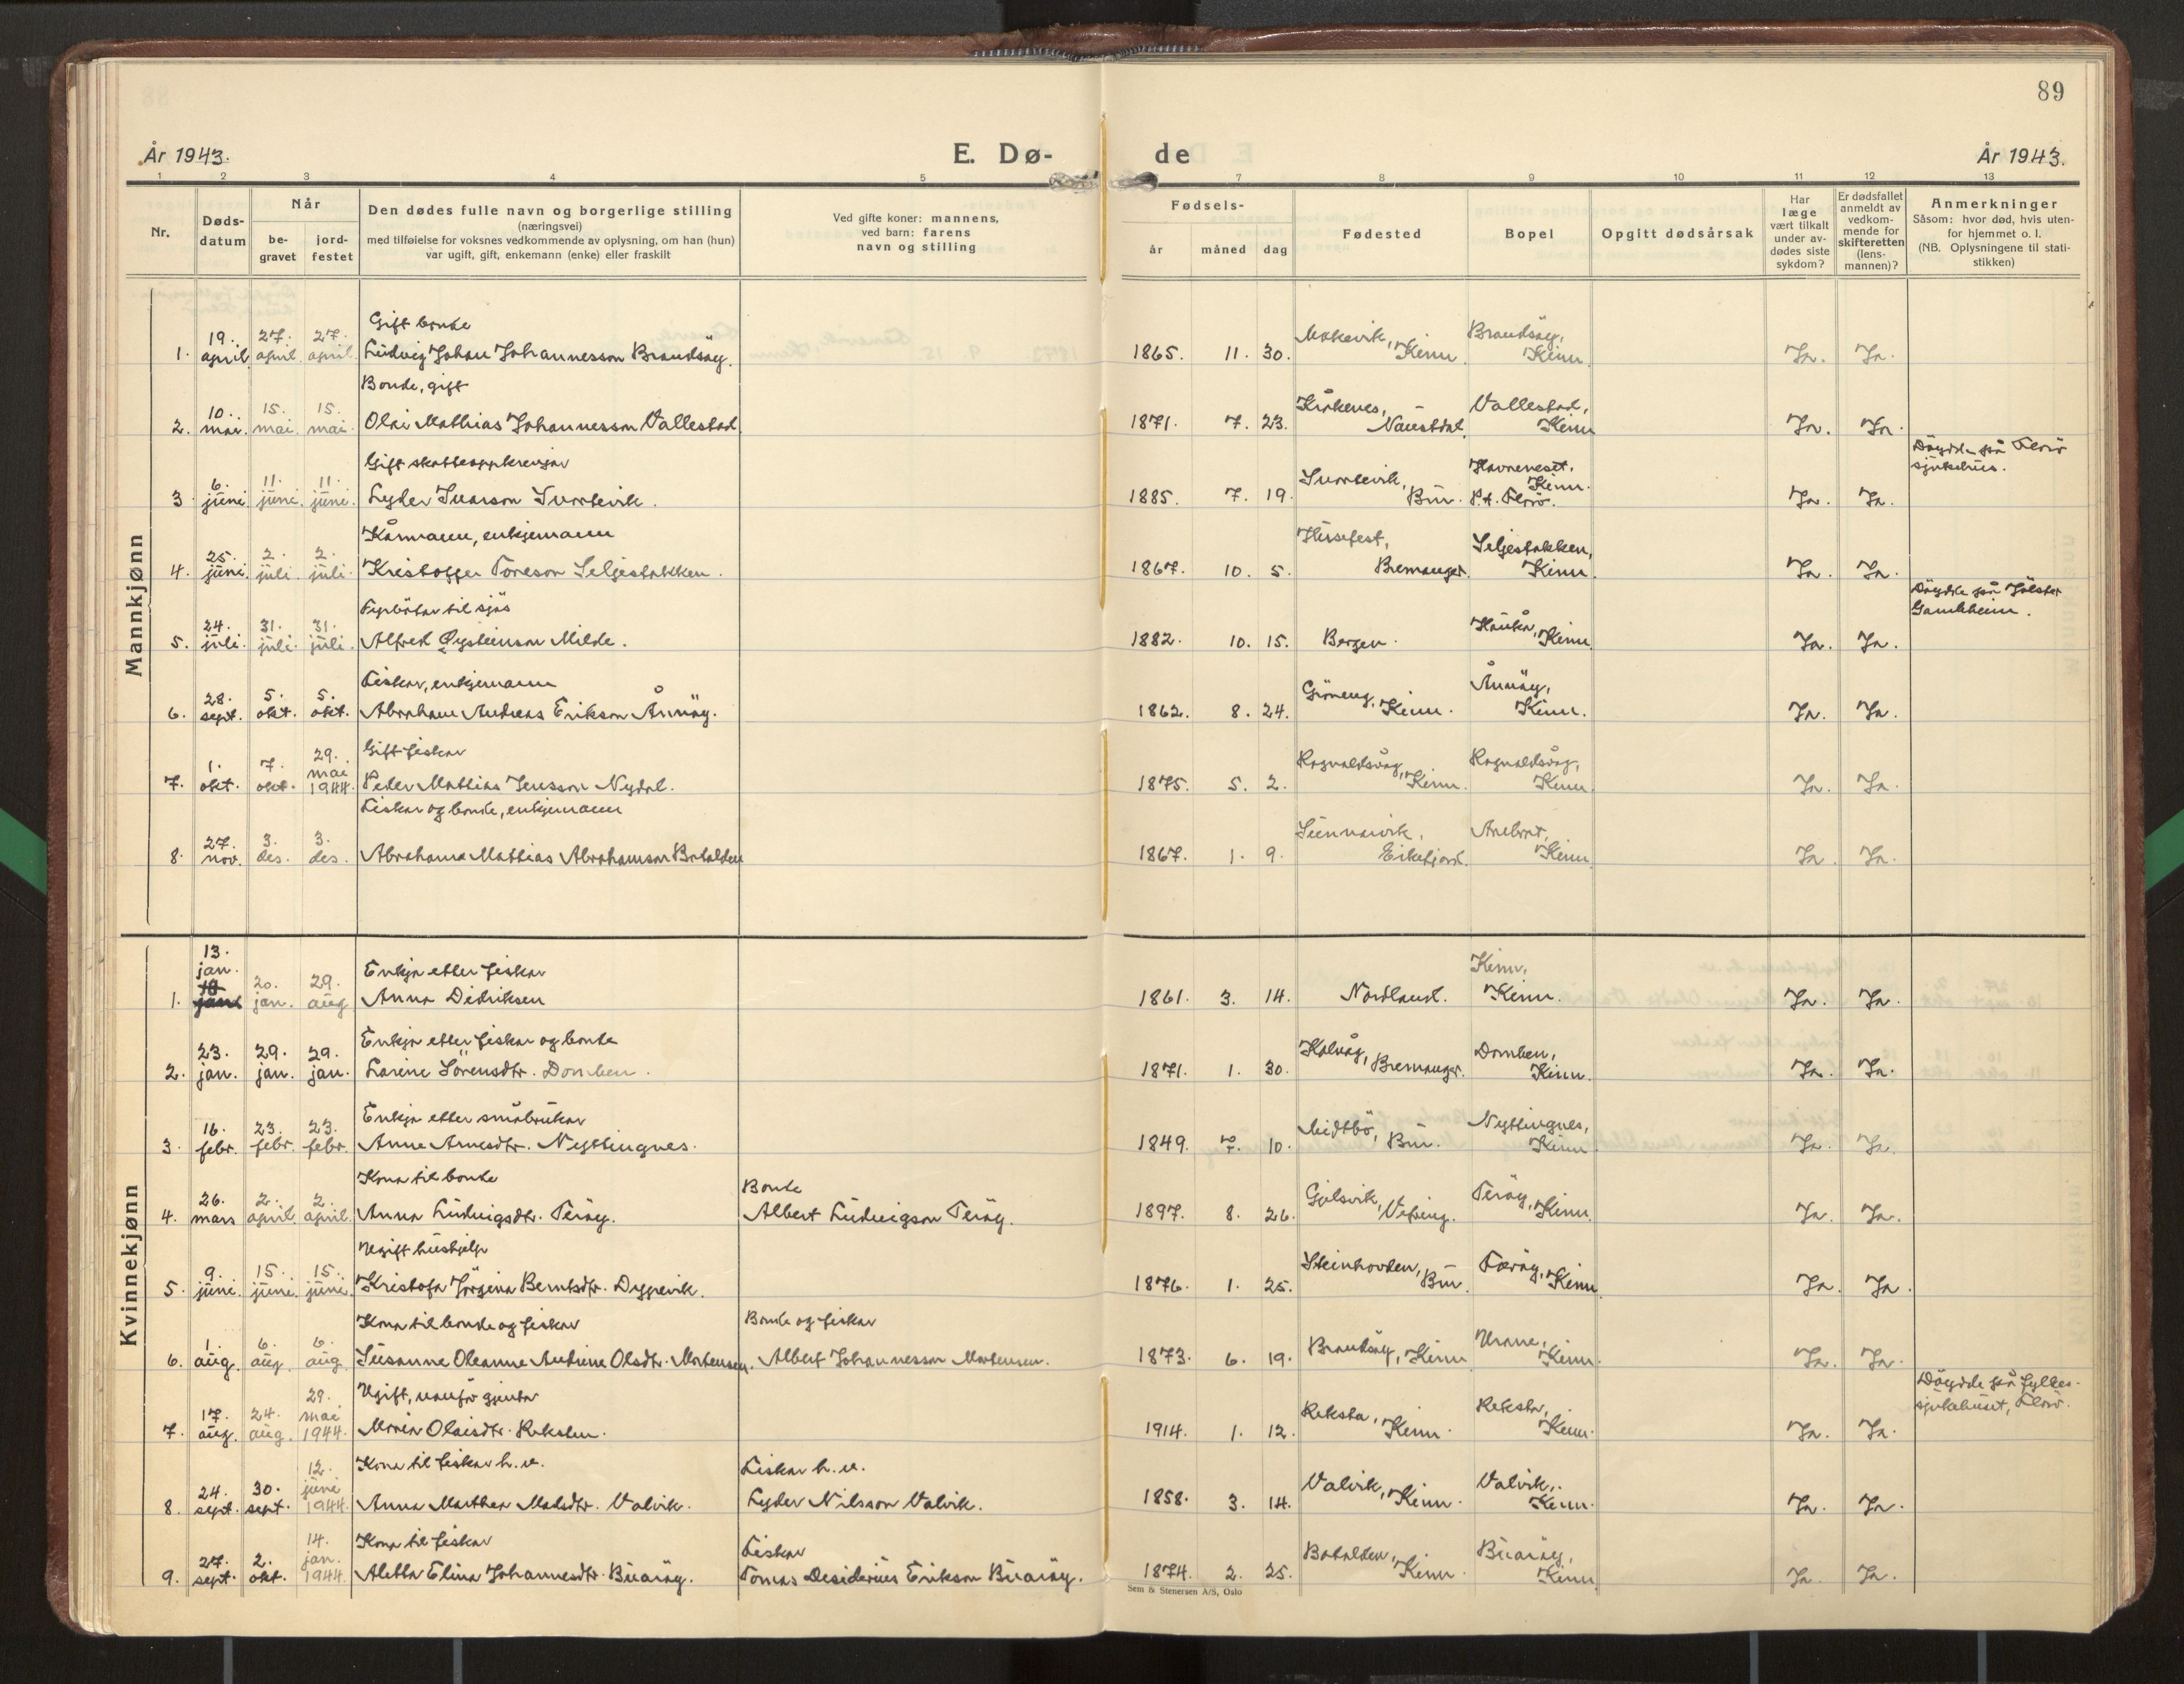 89
År 1943.
E. Dø-
de
År 1943.
1 2 3 4 5 7 8 9 10 11 12 13
Nr.
Døds-
datum
Når
be-
gravet
jord-
festet
Den dødes fulle navn og borgerlige stilling
(næringsvei)
med tilføielse for voksnes vedkommende av oplysning, om han (hun)
var ugift, gift, enkemann (enke) eller fraskilt
Ved gifte koner: mannens,
ved barn: farens
navn og stilling
Fødsels-
år måned dag
Fødested
Bopel
Opgitt dødsårsak
Har
læge
vært tilkalt
under av-
dødes siste
sykdom?
Er dødsfallet
anmeldt av
vedkom-
mende for
skifteretten
(lens-
mannen)?
Anmerkninger
Såsom: hvor død, hvis uten-
for hjemmet o. l.
(NB. Oplysningene til stati-
stikken)
Mannkjønn
Gift bonde
1. 19. april 27. april 27. april Ludvig Johan Johannesson Brandsøy. 1865. 11. 30. Kinn Brandsøy, Kinn Ja. Ja.
Bonde, gift
2. 10. mai. 15. mai 15. mai Olai Mathias Johannesson Vallestad 1871. 7. 23. Kråkenes, Naustdal. Vallestad, Kinn Ja. Ja.
Gift skatteoppkrevjar
3 6. juni. 11. juni. 11. juni. Lyder Ivarson Svortevik. 1885. 7. 19. Svortevik, Bru. Havreneset, Kinn. P.t. Florö. Ja. Ja. Døydde på Florö sjukehus.
Kårmann, enkjemann
4. 25. juni. 2. juli. 2. juli. Kristoffer Toreson Seljestokken. 1867. 10. 5. Husefest, Bremanger. Seljestokken, Kinn Ja. Ja.
Fyrbøtar til sjøs
5. 24. juli. 31. juli. 31. juli. Alfred Øysteinson Milde. 1882. 10. 15. Bergen. Haukå, Kinn Ja. Ja. Døydde på Jølster Gamleheim.
Fiskar, enkjemann
6. 28. sept. 5. okt. 5. okt. Abraham Andreas Erikson Ånnøy. 1862. 8. 24. Kinn. Ånnøy, Kinn. Ja. Ja.
Gift fiskar
7. 1. okt. 7. okt. 29. mai 1944. Peder Mathias Jensson Nydal. 1875. 5. 2. Rognaldsvåg, Kinn. Rognaldsvåg, Kinn Ja. Ja.
Fiskar og bonde, enkjemann
8. 27. nov. 3. des. 3. des. Abrahama Mathias Abrahamson Batalden 1867. 1. 9. Sunnarvik, Eikefjord. Årebrot, Kinn Ja. Ja.
Kvinnekjønn
Enkja etter fiskar
1. 13. jan. 20. jan. 29. aug Anna Didriksen 1861. 3. 14. Nordland. Kinn, Kinn. Ja. Ja.
Enkja etter fiskar og bonde
2. 23. jan. 29. jan. 29. jan. Larine Sörensdtr. Domben. 1871. 1. 30. Kalvåg, Bremanger. Domben, Kinn. Ja. Ja.
Enkja etter småbrukar
3. 16. febr. 23. febr. 23. febr. Anne Arnesdtr. Nyttingnes. 1849. 7. 10. Midtbö, Bru. Nyttingnes, Kinn Ja. Ja.
Kona til bonde Bonde
4. 26. mars 2. april 2. april Anna Ludvigsdtr. Terøy. Albert Ludvigson Terøy. 1897. 8. 26. Gjelsvik, Vefring. Terøy, Kinn Ja. Ja.
Ugift hushjelp
5. 9. juni. 15. juni 15. juni Kristofa Jörgina Berntsdtr. Deyprevik. 1876. 1. 25. Steinhovden, Bru. Færøy, Kinn Ja. Ja.
Kona til bonde og fiskar Bonde og fiskar
6. 1. aug. 6. aug. 6. aug Susanne Oleanne Andrine Olsdtr. Mortensen. Albert Johannesson Mortensen. 1873. 6. 19. Brandsøy, Kinn Urane, Kinn. Ja. Ja.
Ugift, vanför gjenta
7. 17. aug. 24. aug. 29. mai 1944. Maria Olaisdtr. Reksten. 1914. 1. 12. Reksta, Kinn. Reksta, Kinn. Ja. Ja. Døydde på fylkes-sjukahuset, Florö.
Kona til fiskar h.v. Fiskar h.v.
8. 24. sept. 30. sept. 12. juni 1944. Anna Marthea Madsdtr. Valvik. Lyder Nilsson Valvik. 1858. 3. 14. Valvik, Kinn. Valvik, Kinn. Ja. Ja.
Kona til fiskar Fiskar
9. 27. sept. 2. okt. 14. jan. 1944. Aletta Elina Johannesdtr. Buarøy. Tomas Desiderius Erikson Buarøy. 1874. 2. 25. Batalden, Kinn. Buarøy, Kinn. Ja. Ja.
Sem & Stenersen A/S, Oslo